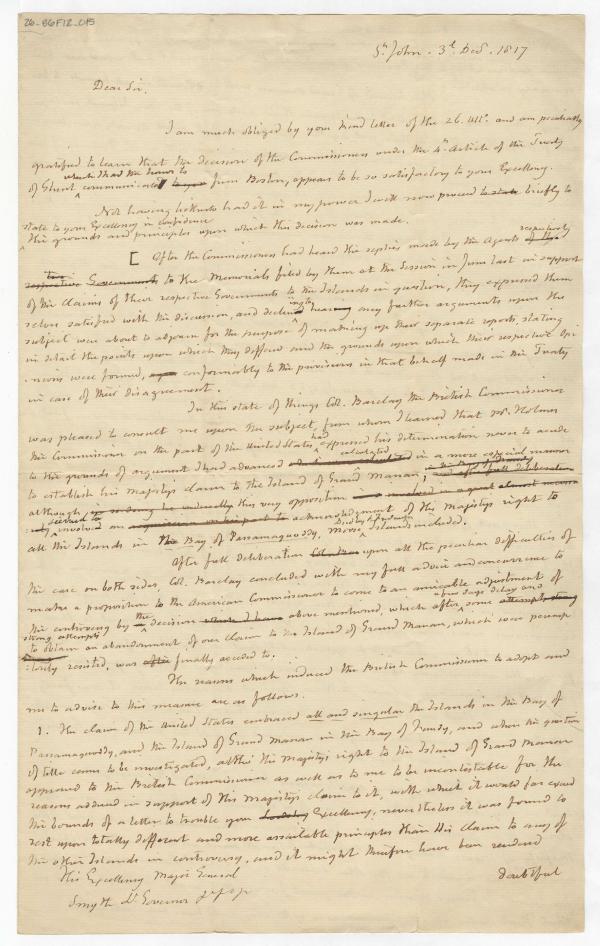 26-B6F12-015
St. John. 3d. Decr. 1817
Dear Sir.
I am much obliged by your kind letter of the 26. Ulto. and am peculiarly
gratified to learn that the decision of the Commissioners under the 4th Article of the Treaty
which I had the honor to
of Ghent communicated to you from Boston, appears to be so satisfactory to your Excellency.
Not having hitherto had it in my power I will now proceed to state briefly to
state to your Excellency in confidence
the grounds and principles upon which this decision was made.
[ After the Commissioners had heard the replies made by the Agents of
respectively
respective Governments to the Memorials filed by them at the Session in June last in support
of the Claims of their respective Governments to the Islands in question, they expressed them
selves satisfied with the discussion, and declined hearing any further arguments upon the
subject were about to adjourn for the purpose of making up their separate reports, stating
in detail the points upon which they differed and the grounds upon which their respective opi
nions were formed, conformably to the provisions in that behalf made in the Treaty
in case of their disagreement.
In this state of things Col. Barclay the British Commissioner
was pleased to consult me upon the subject, from whom I learned that Mr. Holmes
the Commissioner on the part of the United States had expressed his determination never to accede
to the grounds of argument I had advanced
calculated
to establish his Majesty's claim to the Island of Grand Manan, in a more especial manner
although, this very opposition
seemed to
involved an acknowledgment of His Majesty's right to
all the Islands in the Bay of Passamaquoddy, Moose Island included.
After full deliberation upon all the peculiar difficulties of
the case on both sides, Col. Barclay concluded with my full advice and concurrence to
make a proposition to the American Commissioner to come to an amicable adjustment of
the controversy by the decision above mentioned, which after some
a few days delay and
strong attempts
to obtain an abandonment of our Claim to the Island of Grand Manan, which were peremp
torily resisted, was finally acceded to.
The reasons which induced the British Commissioner to adopt and
me to advise to this measure are as follows.
1. The claim of the United States embraced all and singular the Islands in the Bay of
Passamaquoddy, and the Island of Grand Manan in the Bay of Fundy, and when the question
of title came to be investigated, altho' His Majesty's right to the Island of Grand Manan
appeared to the British Commissioner as well as to me to be incontestable for the
reasons adduced in support of His Majesty's claim to it, with which it would far exceed
the bounds of a letter to trouble your Excellency, nevertheless it was found to
rest upon totally different and more assailable principles than His claim to any of
the other Islands in controversy, and it might therefore have been rendered
doubtful
His Excellency Major General
Smyth Lt. Governor